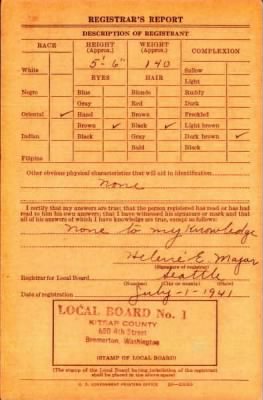 REGISTRAR'S REPORT
DESCRIPTION OF REGISTRANT
RACE HEIGHT (Approx.) WEIGHT (Approx.) COMPLEXION
White 5' 6" 140 Sallow
EYES HAIR Light
Negro Blue Blonde Ruddy
Gray Red Dark
Oriental ✓ Hazel Brown Freckled
Brown ✓ Black ✓ Light brown
Indian Black Gray Dark brown ✓
Bald Black
Filipino
Other obvious physical characteristics that will aid in identification
None
I certify that my answers are true; that the person registered has read or has had
read to him his own answers; that I have witnessed his signature or mark and that
all of his answers of which I have knowledge are true, except as follows:
None to my Knowledge
Helene E. Magar
(Signature of registrar)
Registrar for Local Board Seattle
(Number) (City or county) (State)
Date of registration July-1-1941
LOCAL BOARD No. 1
KITSAP COUNTY
Bremerton, Washington
(STAMP OF LOCAL BOARD)
(The stamp of the Local Board having jurisdiction of the registrant
shall be placed in the above space)
U. S. GOVERNMENT PRINTING OFFICE